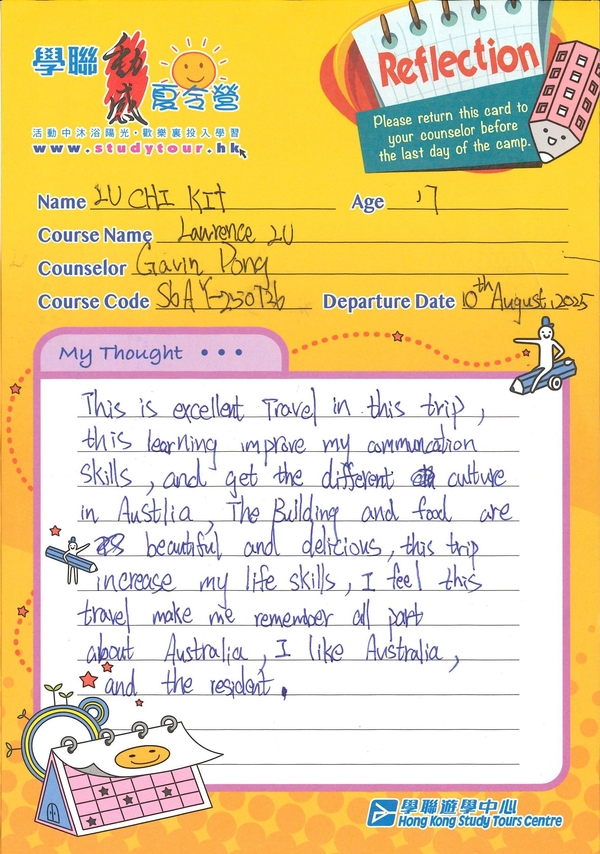 學聯 動感 夏令營
活動中沐浴陽光・歡樂裏投入學習
www.studytour.hk
Reflection
Please return this card to
your counselor before
the last day of the camp.
Name LU CHI KIt Age 17
Course Name Lawrence LU
Counselor Gavin Pong
Course Code Departure Date 10th August, 2025
My Thought • • •
This is excellent Travel in this trip,
this learning improve my communcation
skills, and get the different culture
in Austlia, The Building and food are
beautiful and delicious, this trip
increase my life skills, I feel this
travel make me remember all part
about Australia, I like Australia,
and the resident.
學聯遊學中心
Hong Kong Study Tours Centre